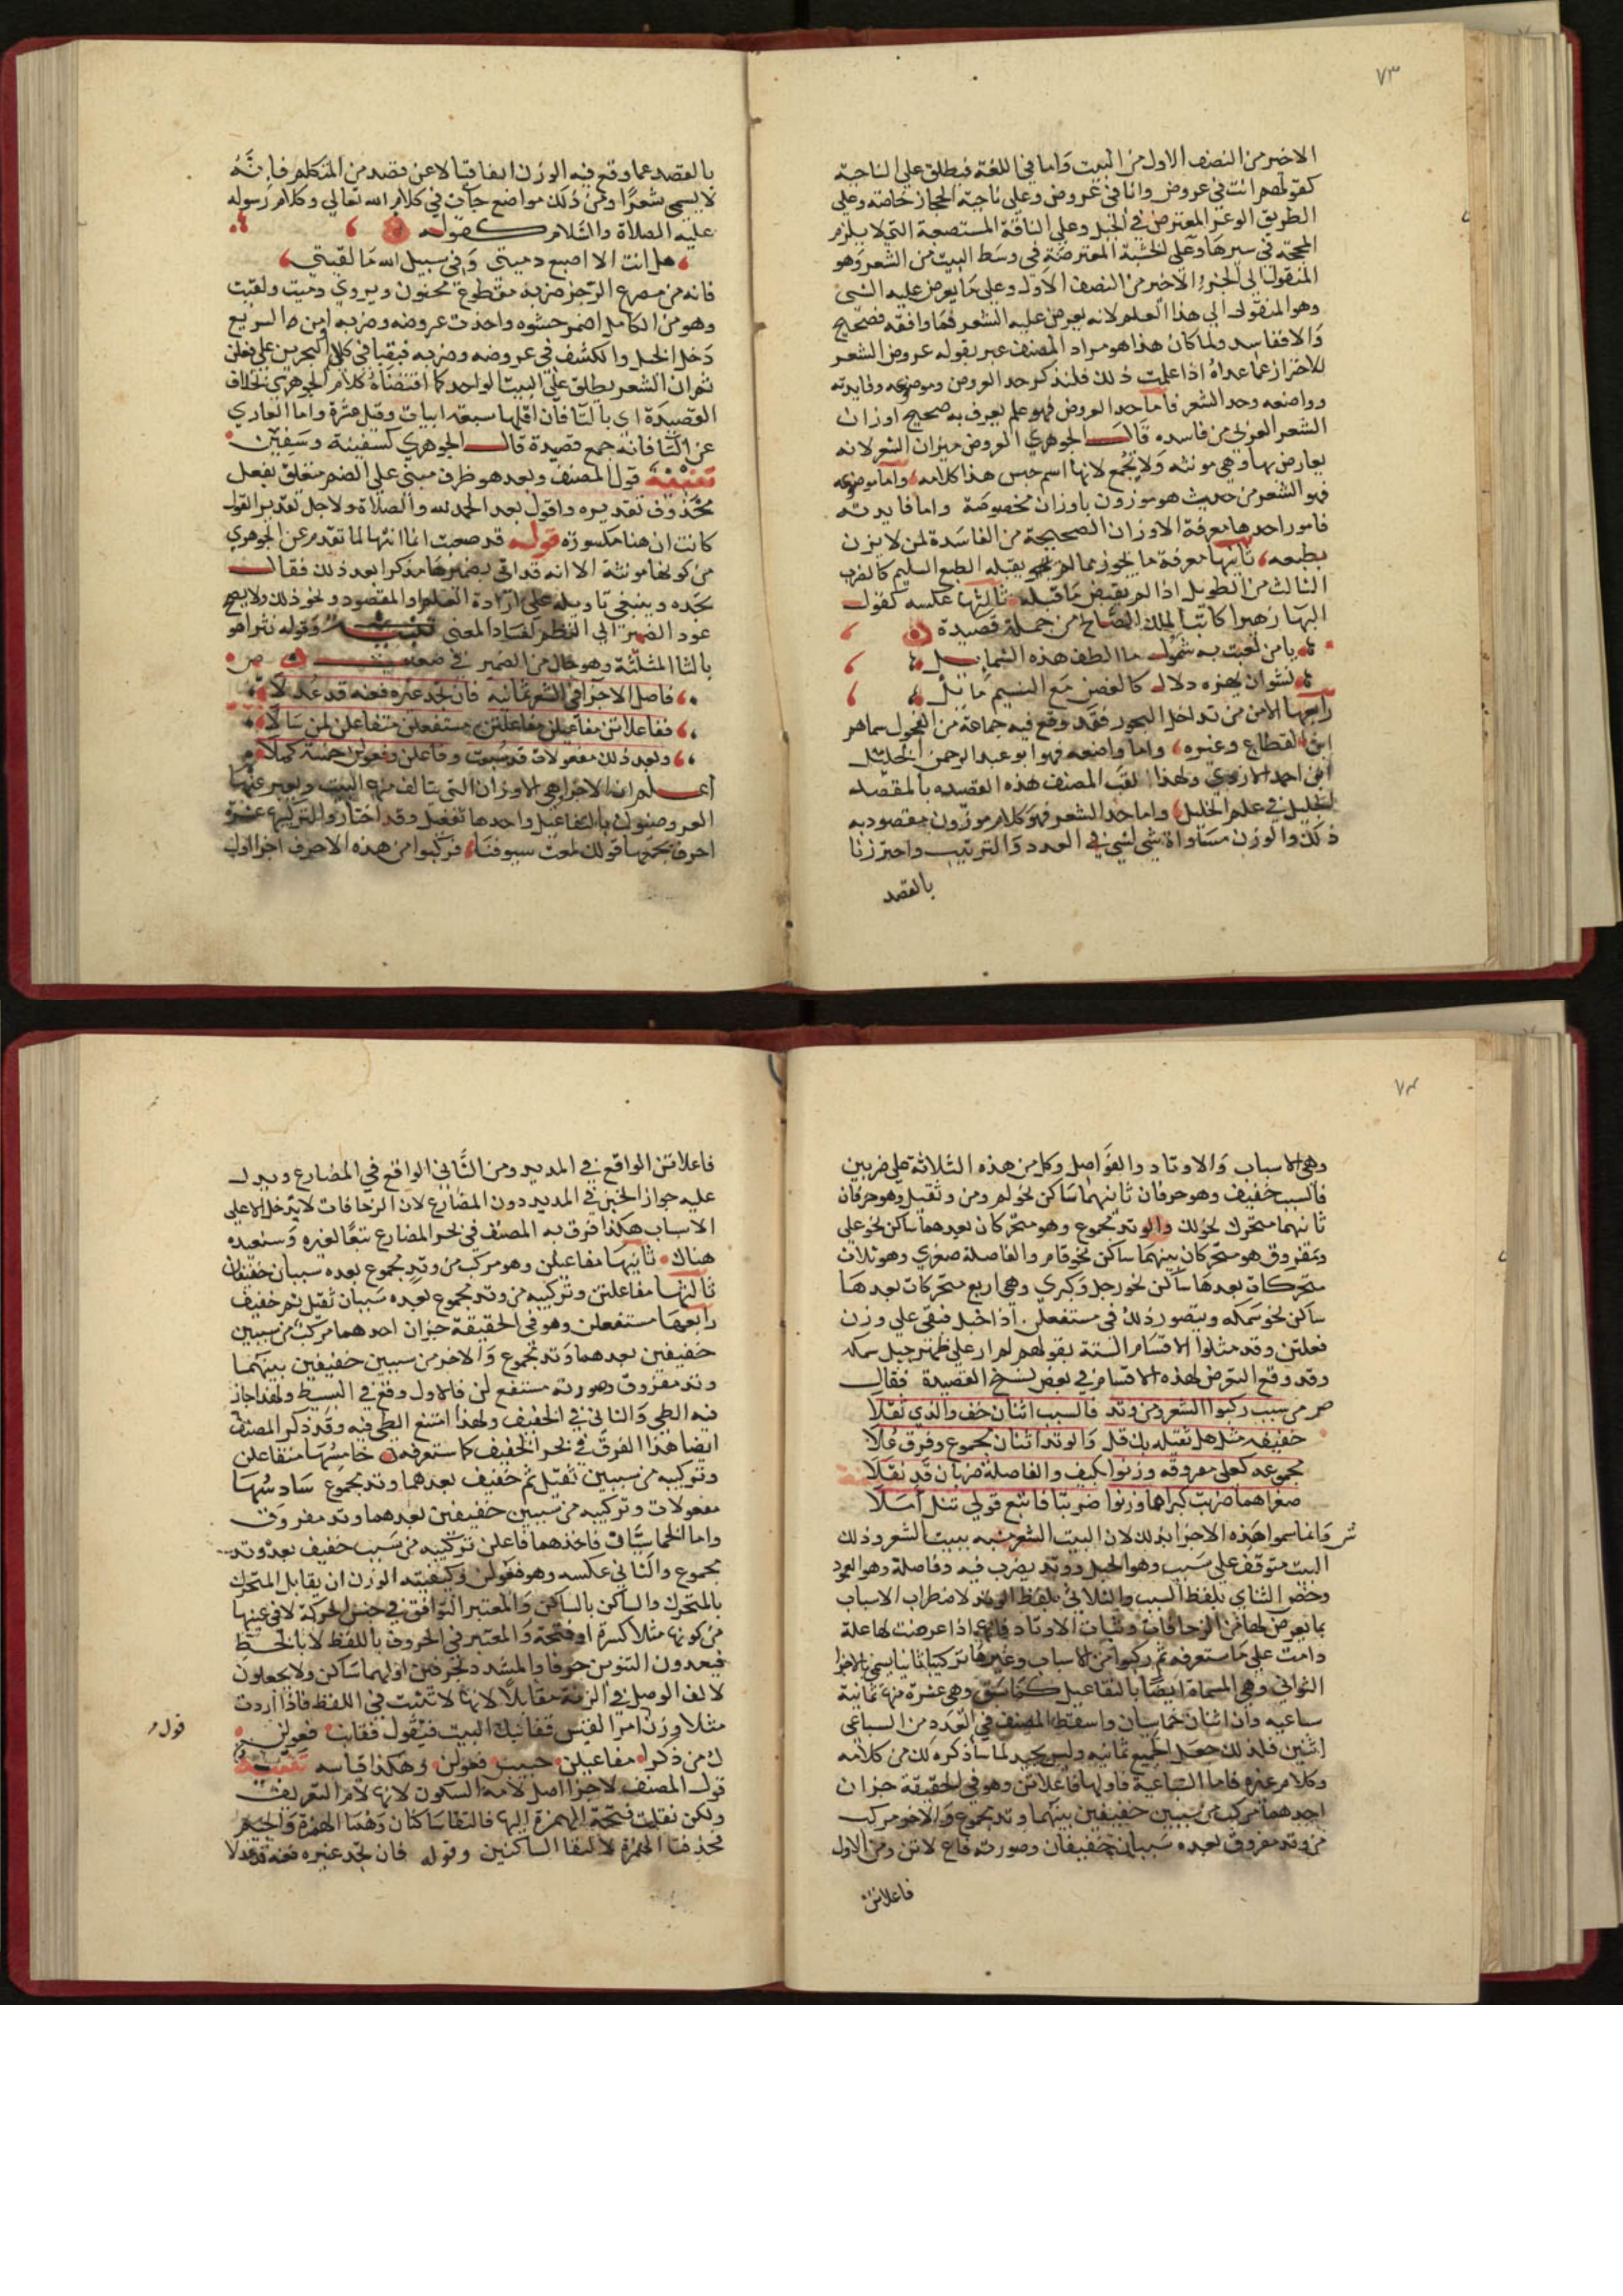 ٧٣
الاخير من النصف الاول من البيت واما في اللغة فيطلق علي الناحية
كقولهم انت في عروض وانا في عروض وعلي ناحية الحجاز خاصة وعلي
الطريق الوعر المعترض في الجبل وعلي الناقة المستصعبة التي لا يلزم
المحجة في سيرها وعلي الخشبة المعترضة في وسط البيت من الشعر وهو
المنقول الي الجزء الاخير من النصف الاول وعلي ما يعرض عليه الشي
وهو المنقول الي هذا العلم لانه يعرض عليه الشعر فما وافقه فصحيح
والا ففاسد ولما كان هذا هو مراد المصنف عبر بقوله عروض الشعر
للاحتراز عما عداه اذا علمت ذلك فلنذكر حد العروض وموضوعه وفايدته
وواضعه وحد الشعر فاما حد العروض فهو علم يعرف به صحيح اوزان
الشعر العربي من فاسده قال الجوهري العروض ميزان الشعر لانه
يعارض بها وهي مونثه ولا تجمع لانها اسم جنس هذا كلامه واما موضوعه
فهو الشعر من حيث هو موزون باوزان مخصوصة واما فايدته
فامور احدها معرفة الاوزان الصحيحة من الفاسدة لمن لا يزن
بطبعه ثانيها معرفة ما يجوز مما لم يقبله الطبع السليم كالضرب
الثالث من الطويل اذا لم يقبض ما قبله ثالثها عكسه كقول
البها زهير كاتب الملك الصالح من جملة قصيدة
يا من لعبت به شمول ما الطف هذه الشمايل
نشوان يهزه دلال كالغصن مع النسيم مايل
رابعها الامن من تداخل البحور فقد وقع فيه جماعة من الفحول سماهم
ابن القطاع وغيره واما واضعه فهو ابو عبد الرحمن الخليل
ابن احمد الازدي ولهذا لقب المصنف هذه القصيده بالمقصد
الجليل في علم الخليل واما حد الشعر فهو كلام موزون مقصود به
ذلك والوزن مساواة شي لشي في العدد والترتيب واحترزنا
بالقصد
بالقصد عما وقع فيه الوزن اتفاقيا لا عن قصد من المتكلم فانه
لا يسمي شعرا ومن ذلك مواضع جات في كلام الله تعالي وكلام رسوله
عليه الصلاة والسلام كقوله
هل انت الا اصبع دميتي وفي سبيل الله ما لقيتي
فانه من مصرع الرجز ضربه مقطوع مخبون ويروي دميت ولقيت
وهو من الكامل اضمر حشوه واحذت عروضه وضربه او من السريع
دخل الخبل والكشف في عروضه وضربه فبقيا في كلا البحرين علي فعلن
ثم ان الشعر يطلق علي البيت الواحد كما اقتضاه كلام الجوهري بخلاف
القصيدة اي بالتا فان اقلها سبعة ابيات وقيل عشرة واما العاري
عن التا فانه جمع قصيدة قال الجوهري كسفينة وسفين
تنبيه قول المصنف وبعد هو ظرف مبني علي الضم متعلق بفعل
محذوف تقديره واقول بعد الحمد لله والصلاة ولاجل تقدير القول
كانت ان هنا مكسوره قوله قد صعبت انما انثها لما تقدم عن الجوهري
من كونها مونثة الا انه قد اتي بضميرها مذكرا بعد ذلك فقال
تجده وينبغي تاويله علي ارادة العلم او المقصود ونحو ذلك ولا يصح
عود الضمير الي النظم لفساد المعني وقوله نثرا هو
بالثا المثلثة وهو حال من الضمير في صعبت ص
فاصل الاجزا في الشعر ثمانية فان تجد غيره فعنه قد عدلا
ففاعلاتن مفاعيلن مفاعلتن مستفعلن متفاعلن لمن سالا
وبعد ذلك مفعولات قد سبعت وفاعلن وفعولن خمسة كملا
اعلم ان الاجزا هي الاوزان التي يتالف منها البيت ويعبر عنها
العروضيون بالتفاعيل واحدها تفعيل وقد اختاروا للتركيب عشرة
احرف يجمعها قولك لمعت سيوفنا فركبوا من هذه الاحرف اجزا اول
٧٤
وهي الاسباب والاوتاد والفواصل وكل من هذه الثلاثة علي ضربين
فالسبب خفيف وهو حرفان ثانيهما ساكن نحو لم ومن وثقيل وهو حرفان
ثانيهما متحرك نحو لك والوتد مجموع وهو متحركان بعدهما ساكن نحو علي
ومفروق هو متحركان بينهما ساكن نحو قام والفاصلة صغري وهو ثلاث
متحركات بعدها ساكن نحو رجل وكبري وهي اربع متحركات بعدها
ساكن نحو سمكه ويتصور ذلك في مستفعلن اذا خبل فبقي علي وزن
فعلتن وقد مثلوا الاقسام الستة بقولهم لم ار علي ظهر جبل سمكه
وقد وقع التعرض لهذه الاقسام في بعض نسخ القصيدة فقال
ص من سبب ركبوا الشعر ومن وتد فالسبب اثنان خف والذي ثقلا
خفيفه مثل هل ثقيله بك قل والوتد اثنان مجموع وفرق علا
مجموعه كعلي مفروقه وزنوا بكيف والفاصلة ضربان قد نقلا
صغراهما ضربت كبراهما وزنوا ضربتا فاتبع قولي تنل املا
ش وانما سموا هذه الاجزا بذلك لان البيت الشعر شبه ببيت الشعر وذلك
البيت متوقف علي سبب وهو الحبل ووتد يضرب فيه وفاصلة وهو العمود
وخص الثناي بلفظ السبب والثلاثي بلفظ الوتد لاضطراب الاسباب
بما يعرض لها من الزحافات وثبات الاوتاد فانها اذا عرضت لها علة
دامت علي ما ستعرفه ثم ركبوا من الاسباب وغيرها تركيبا ثانيا يسمي بالاجزا
الثواني وهي المسماة ايضا بالتفاعيل كما سبق وهي عشرة منها ثمانية
سباعيه وان اثنان خماسيان واسقط المصنف في العدد من السباعي
اثنين فلذلك جعل الجميع ثمانيه وليس بجيد لما ساذكره لك من كلامه
وكلام غيره فاما السباعية فاولها فاعلاتن وهو في الحقيقة جزان
احدهما مركب من سببين خفيفين بينهما وتد مجموع والاخر مركب
من وتد مفروق بعده سببان خفيفان وصورته فاع لاتن ومن الاول
فاعلاتن
فاعلاتن الواقع في المديد ومن الثاني الواقع في المضارع ويدل
عليه جواز الخبن في المديد دون المضارع لان الزحافات لا يدخل الا علي
الاسباب هكذا فرق به المصنف في نحو المضارع تبعا لغيره وستعيده
هناك ثانيها مفاعيلن وهو مركب من وتد مجموع بعده سببان خفيفان
ثالثها مفاعلتن وتركيبه من وتد مجموع بعده سببان ثقيل ثم خفيف
رابعها مستفعلن وهو في الحقيقة جزان احدهما مركب من سببين
خفيفين بعدهما وتد مجموع والاخر من سببين خفيفين بينهما
وتد مفروق وصورته مستفع لن فالاول وقع في البسيط ولهذا جاز
فيه الطي والثاني في الخفيف ولهذا امتنع الطي فيه وقد ذكر المصنف
ايضا هذا الفرق في بحر الخفيف كما ستعرفه خامسها متفاعلن
وتركيبه من سببين ثقيل ثم خفيف بعدهما وتد مجموع سادسها
مفعولات وتركيبه من سببين خفيفين بعدهما وتد مفروق
واما الخماسيان فاحدهما فاعلن تركيبه من سبب خفيف بعده وتد
مجموع والثاني عكسه وهو فعولن وكيفيته الوزن ان يقابل المتحرك
بالمتحرك والساكن بالساكن والمعتبر التوافق في جنس الحركة لا في عينها
من كونها مثلا كسرة او فتحة والمعتبر في الحروف باللفظ لا بالخط
فيعدون التنوين حرفا والمشدد بحرفين اولهما ساكن ولا يجعلون
لالف الوصل في الزنة مقابلا لانها لا تثبت في اللفظ فاذا اردت
مثلا وزن امرا القيس قفا نبك البيت فيقول قفانب فعولن
ك من ذكرا مفاعيلن حبيب فعولن وهكذا قياسه تنبيه
قول
قول المصنف لاجزا اصل لامه السكون لانها لام التعريف
ولكن نقلت فتحة الهمزة اليها فالتقا ساكنان وهما الهمزة والجيم
فحذفت الهمزة لالتقا الساكنين وقوله فان تجد غيره فعنه قد عدلا